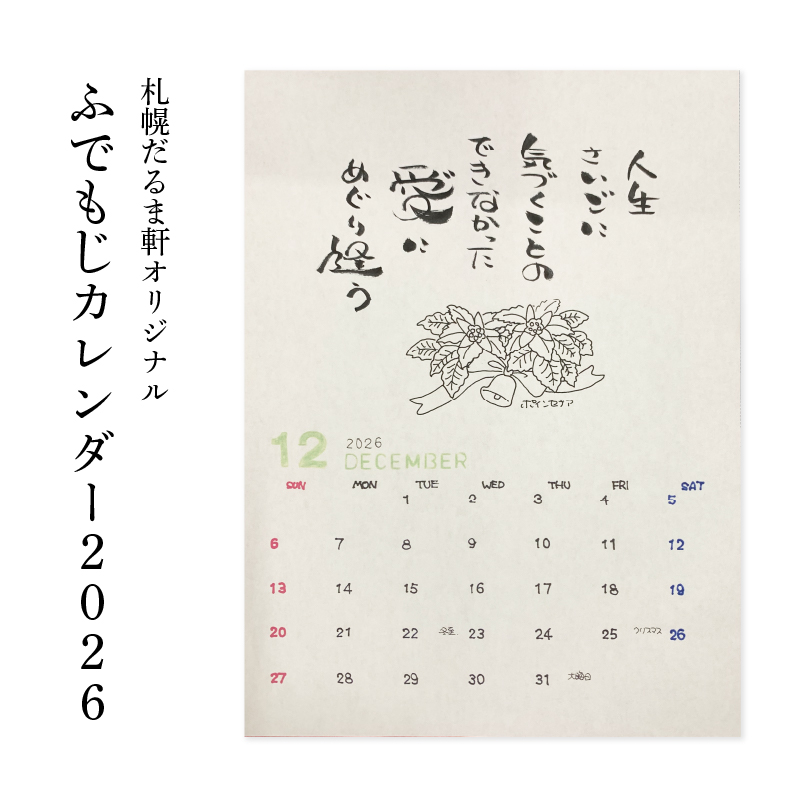 札幌だるま軒オリジナル
ふでもじカレンダー2026
人生
さいごに
気づくことの
できなかった
愛に
めぐり逢う
ポインセチア
12 2026
DECEMBER
SUN MON TUE WED THU FRI SAT
1 2 3 4 5
6 7 8 9 10 11 12
13 14 15 16 17 18 19
20 21 22 冬至 23 24 25 クリスマス 26
27 28 29 30 31 大晦日